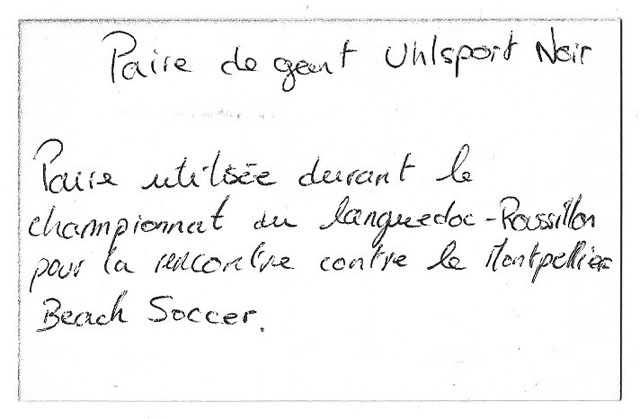 Paire de gant Uhlsport Noir
Paire utilisée durant le
championnat du languedoc-Roussillon
pour la rencontre contre le Montpellier
Beach Soccer.